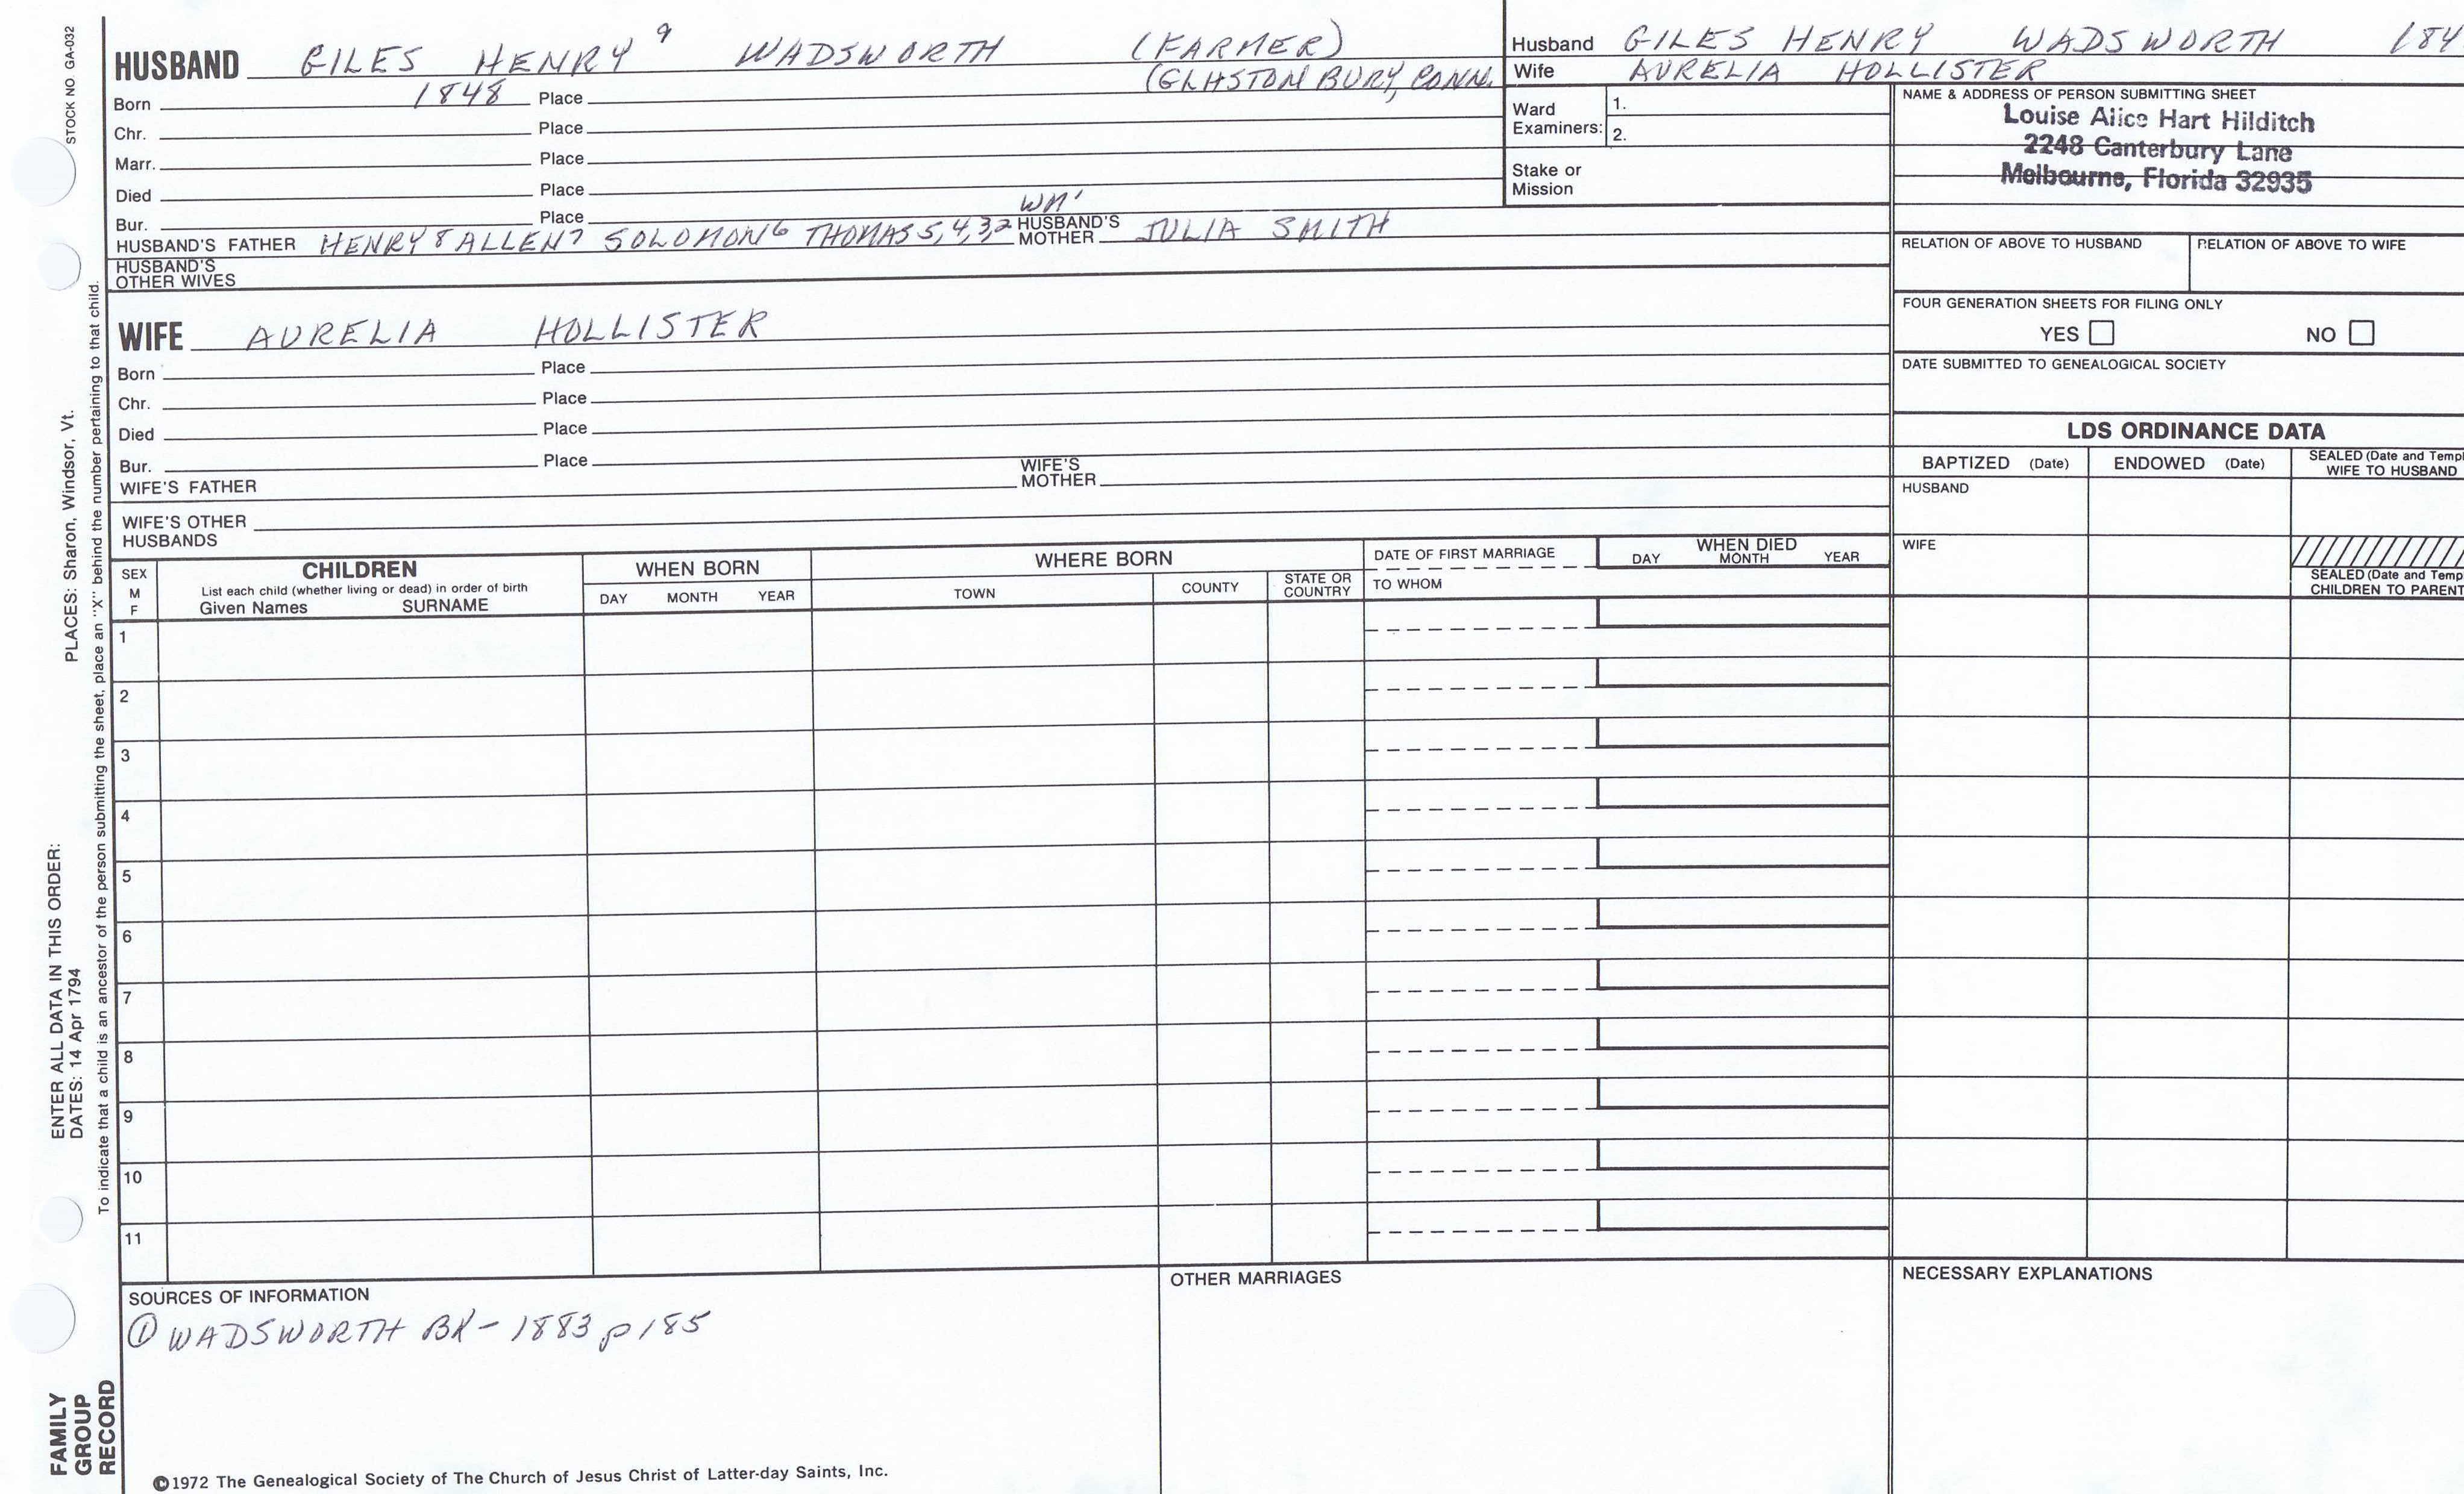 STOCK NO GA-032
HUSBAND GILES HENRY 9 WADSWORTH (FARMER)
(GLASTONBURY, CONN.
Born 1848 Place
Chr. Place
Marr. Place
Died Place
Bur. Place
WM 1
HUSBAND'S FATHER HENRY 8 ALLEN 7 SOLOMON 6 THOMAS 5, 4, 3, 2 HUSBAND'S MOTHER JULIA SMITH
HUSBAND'S OTHER WIVES
WIFE AURELIA HOLLISTER
Born Place
Chr. Place
Died Place
Bur. Place
WIFE'S FATHER WIFE'S MOTHER
WIFE'S OTHER HUSBANDS
Husband GILES HENRY WADSWORTH 184
Wife AURELIA HOLLISTER
Ward Examiners: 1.
2.
Stake or Mission
NAME & ADDRESS OF PERSON SUBMITTING SHEET
Louise Alice Hart Hilditch
2248 Canterbury Lane
Melbourne, Florida 32935
RELATION OF ABOVE TO HUSBAND RELATION OF ABOVE TO WIFE
FOUR GENERATION SHEETS FOR FILING ONLY
YES NO
DATE SUBMITTED TO GENEALOGICAL SOCIETY
LDS ORDINANCE DATA
BAPTIZED (Date) ENDOWED (Date) SEALED (Date and Templ
WIFE TO HUSBAND
HUSBAND
WIFE
SEALED (Date and Temp
CHILDREN TO PARENT
SEX
M
F
CHILDREN
List each child (whether living or dead) in order of birth
Given Names SURNAME
WHEN BORN
DAY MONTH YEAR
WHERE BORN
TOWN COUNTY STATE OR COUNTRY
DATE OF FIRST MARRIAGE
TO WHOM
WHEN DIED
DAY MONTH YEAR
1
2
3
4
5
6
7
8
9
10
11
SOURCES OF INFORMATION
① WADSWORTH BK - 1883 p 185
OTHER MARRIAGES
NECESSARY EXPLANATIONS
©1972 The Genealogical Society of The Church of Jesus Christ of Latter-day Saints, Inc.
FAMILY
GROUP
RECORD
ENTER ALL DATA IN THIS ORDER:
DATES: 14 Apr 1794 PLACES: Sharon, Windsor, Vt.
To indicate that a child is an ancestor of the person submitting the sheet, place an "X" behind the number pertaining to that child.